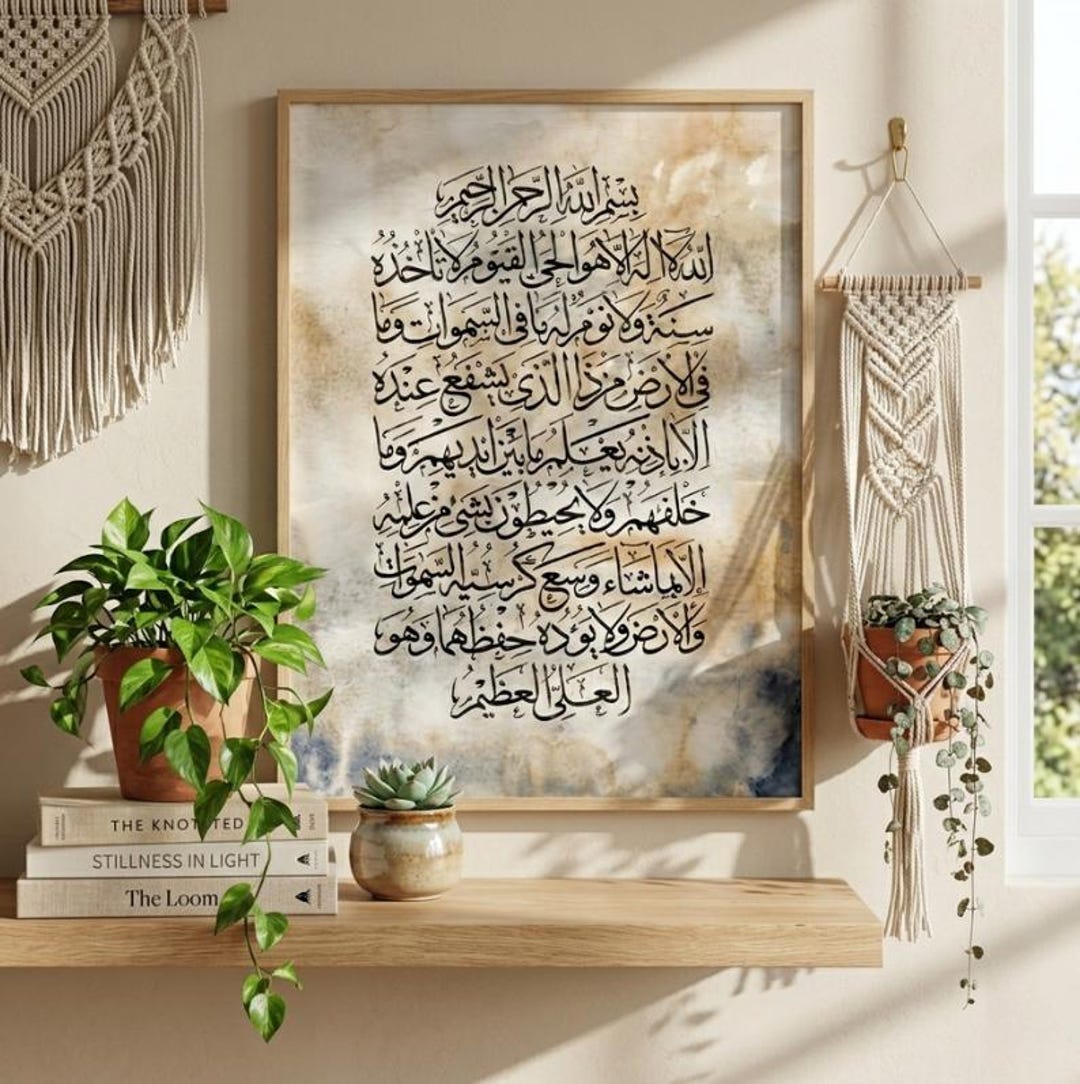 بِسْمِ اللّٰهِ الرَّحْمٰنِ الرَّحِيْمِ
اَللّٰهُ لَا اِلٰهَ اِلَّا هُوَ الْحَيُّ الْقَيُّوْمُ لَا تَأْخُذُهُ
سِنَةٌ وَلَا نَوْمٌ لَهُ مَا فِي السَّمٰوَاتِ وَمَا
فِي الْاَرْضِ مَنْ ذَا الَّذِيْ يَشْفَعُ عِنْدَهُ
اِلَّا بِاِذْنِهِ يَعْلَمُ مَا بَيْنَ اَيْدِيْهِمْ وَمَا
خَلْفَهُمْ وَلَا يُحِيْطُوْنَ بِشَيْءٍ مِنْ عِلْمِهِ
اِلَّا بِمَا شَاءَ وَسِعَ كُرْسِيُّهُ السَّمٰوَاتِ
وَالْاَرْضَ وَلَا يَؤُدُهُ حِفْظُهُمَا وَهُوَ
الْعَلِيُّ الْعَظِيْمُ
STILLNESS IN LIGHT
The Loom